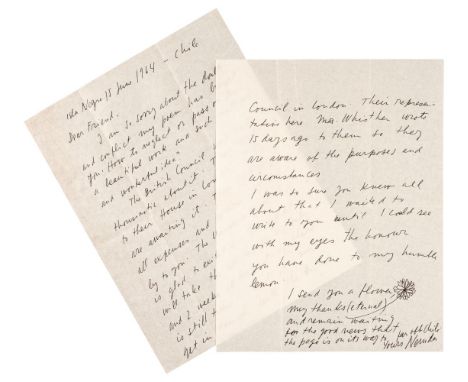 Isla Negra 15 June 1964 – Chile
Dear Friend,
I am so sorry about the dou
and conflict my poem has b
you. How to neglect or pass o
a beautiful work and such
and wonderful idea"
The British Council
thousiastic about it. T
to their House in Lon
are awaiting it.
all expenses and
by to you. The
is glad to exi
will take th
and 2 week
is still t
get in
Council in London. Their represen-
tative here Mr. Whistler wrote
15 days ago to them so they
are aware of the purposes and
circumstances
I was so sure you knew all
about that I waited to
write to you until I could see
with my eyes the honour
you have done to my humble
lemon.
I send you a flower
my thanks (eternal)
and remain waiting
for the good news that
the page is on its way to far off Chile
Yours Neruda